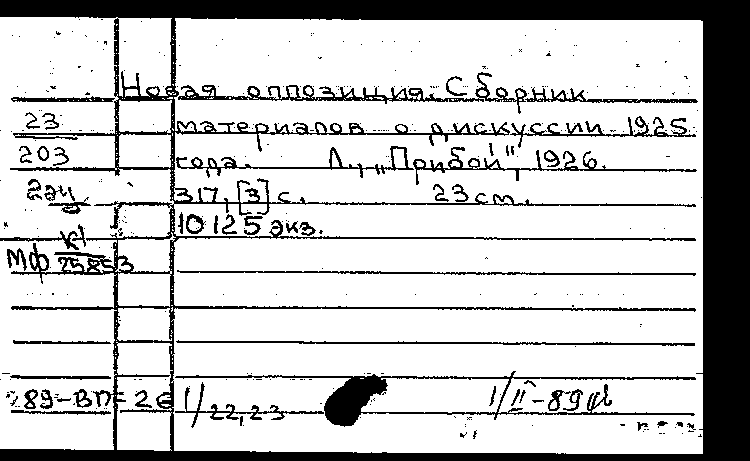 Новая оппозиция. Сборник
23 материалов о дискуссии 1925
203 года. Л., „Прибой", 1926.
2эч 317, [3] с. 23 см.
10125 экз.
Мф К1
25853
289-ВП-26 1/22,23 1/II-89